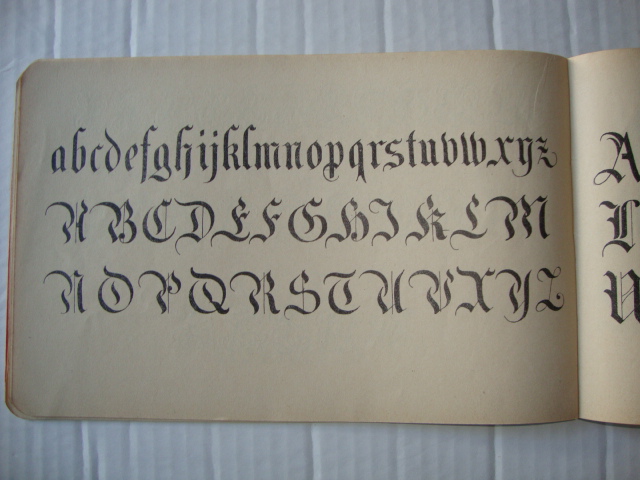 abcdefghijklmnopqrstuvwxyz
ABCDEFGHIJKLM
NOPQRSTUVXYZ
A
L